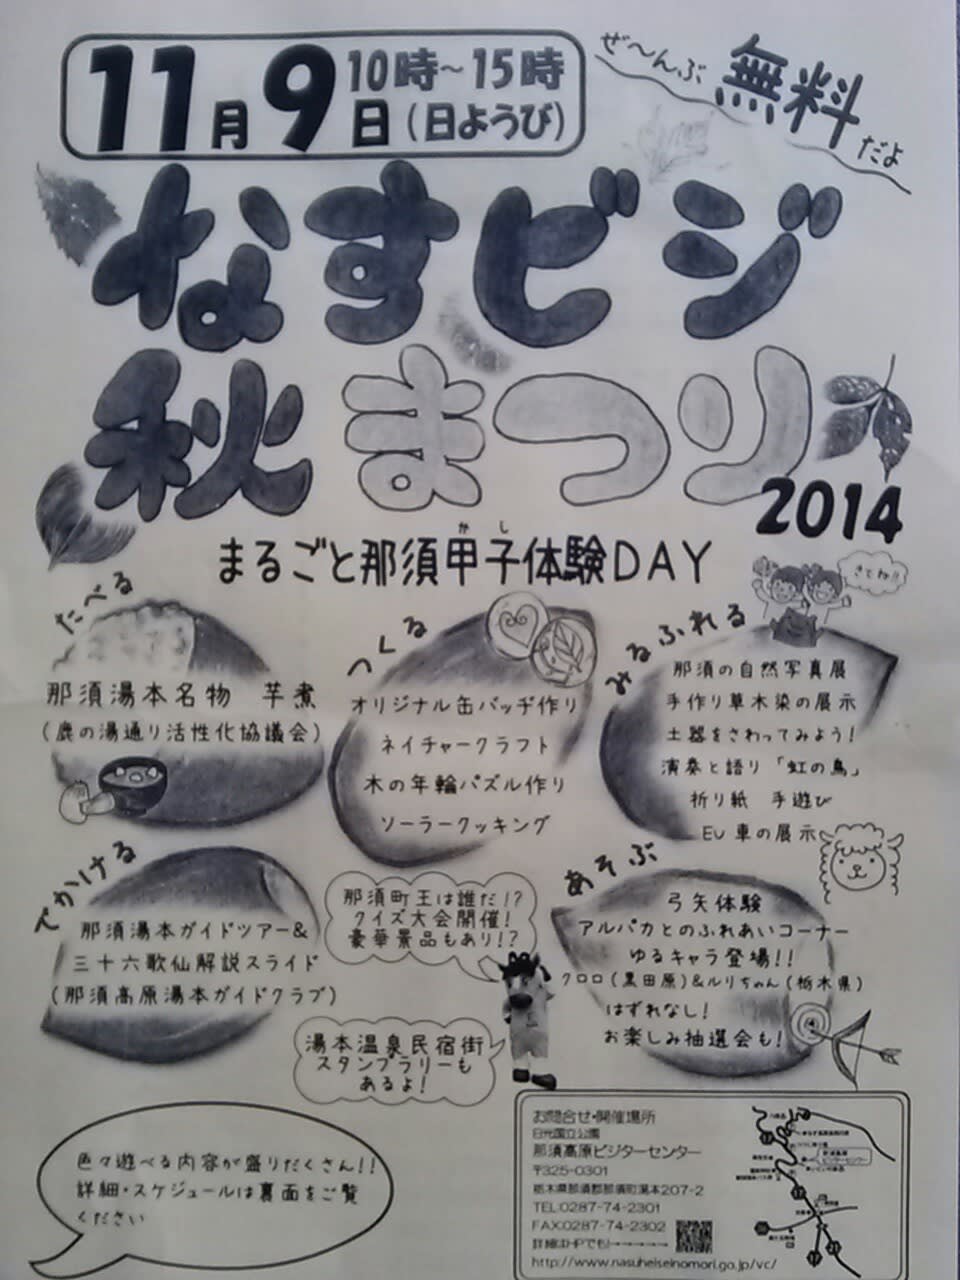 11月9日
10時～15時
(日ようび)
ぜ～んぶ
無料
だよ
なすビジ
秋まつり
2014
かし
まるごと那須甲子体験DAY
たべる
那須湯本名物 芋煮
(鹿の湯通り活性化協議会)
つくる
オリジナル缶バッヂ作り
ネイチャークラフト
木の年輪パズル作り
ソーラークッキング
みるふれる
那須の自然写真展
手作り草木染の展示
土器をさわってみよう!
演奏と語り「虹の鳥」
折り紙 手遊び
EV車の展示
でかける
那須湯本ガイドツアー&
三十六歌仙解説スライド
(那須高原湯本ガイドクラブ)
那須町王は誰だ!?
クイズ大会開催!
豪華景品もあり!?
湯本温泉民宿街
スタンプラリーも
あるよ!
あそぶ
弓矢体験
アルパカとのふれあいコーナー
ゆるキャラ登場!!
クロロ(黒田原)&ルリちゃん(栃木県)
はずれなし!
お楽しみ抽選会も!
色々遊べる内容が盛りだくさん!!
詳細・スケジュールは裏面をご覧
ください
お問合せ・開催場所
日光国立公園
那須高原ビジターセンター
〒325-0301
栃木県那須郡那須町湯本207-2
TEL:0287-74-2301
FAX:0287-74-2302
詳細はHPでも!→→→→
http://www.nasuheiseinomori.go.jp/vc/